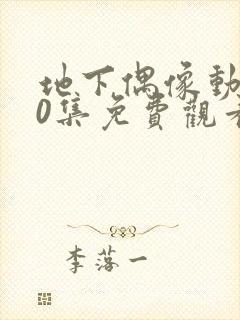 地下偶像動
0集免費觀看
李落一